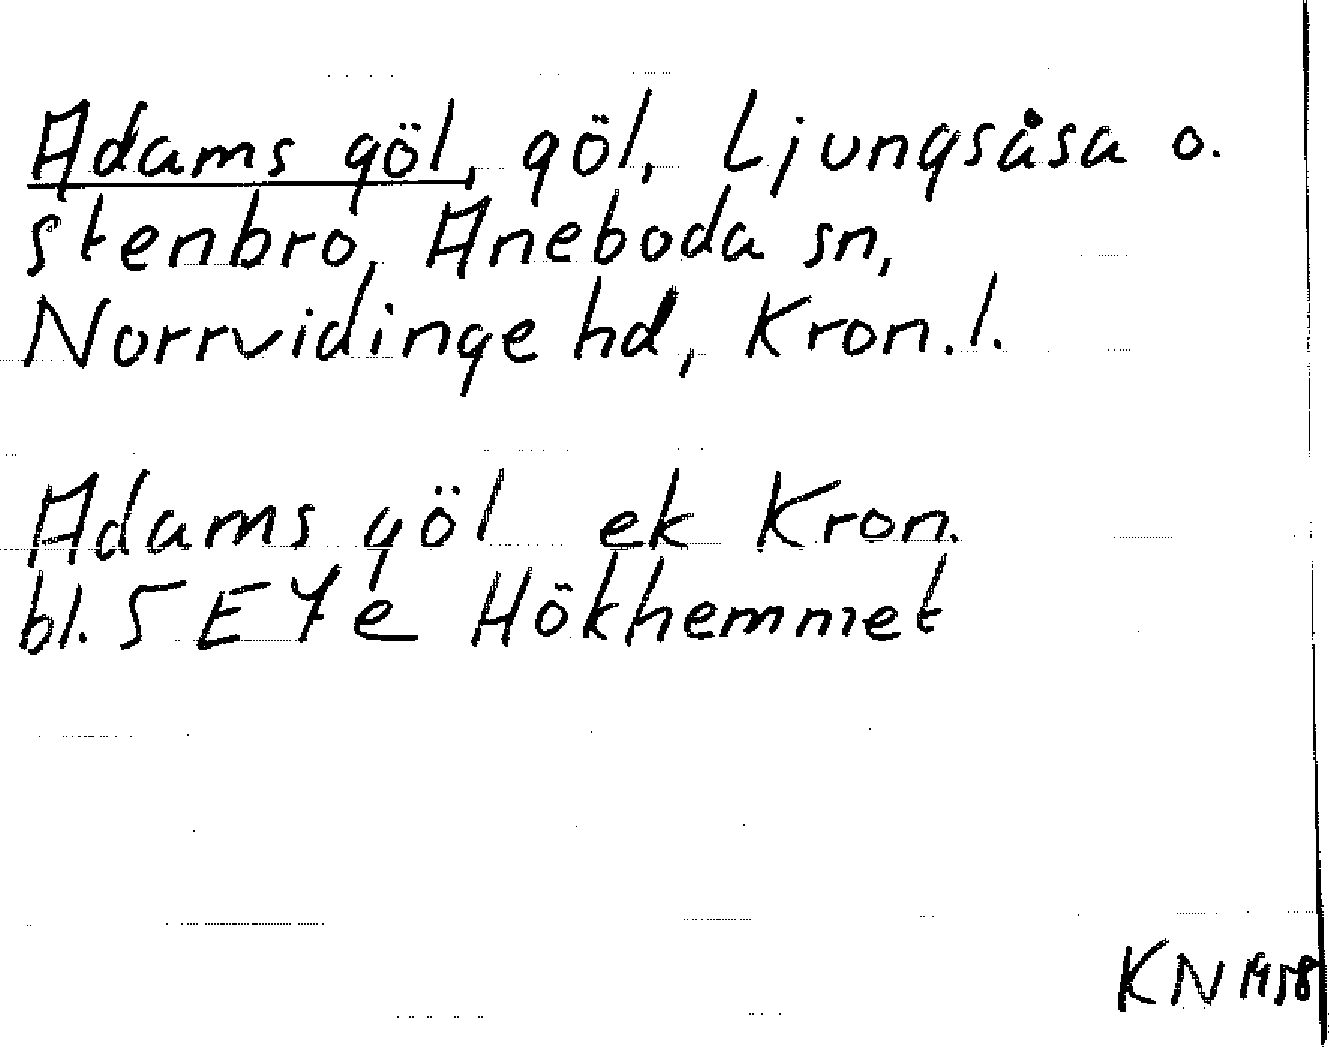 Adams göl, göl, Ljungsåsa o.
Stenbro, Aneboda sn,
Norrvidinge hd, Kron.l.
Adams göl ek Kron.
bl. 5 E 7 e Hökhemmet
KN 1958